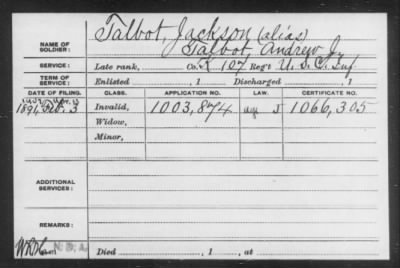 Talbot, Jackson (alias)
NAME OF SOLDIER: Talbot, Andrew J.
SERVICE: Late rank, Co. K 107 Reg't U. S. C. Inf
TERM OF SERVICE: Enlisted , 1 Discharged , 1
DATE OF FILING. CLASS. APPLICATION NO. LAW. CERTIFICATE NO.
1891, 3 Invalid, 1003,874 J 1066,305
Widow,
Minor,
ADDITIONAL SERVICES:
REMARKS:
Died , 1 , at